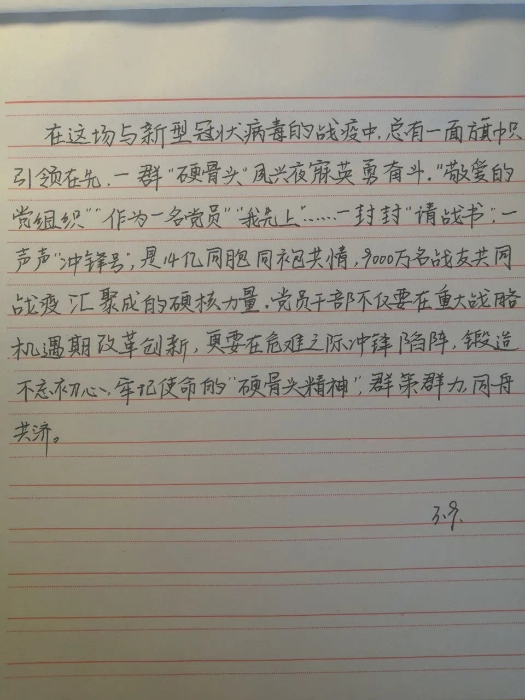 在这场与新型冠状病毒的战疫中,总有一面旗帜
引领在先,一群“硬骨头”夙兴夜寐英勇奋斗.“敬爱的
党组织”“作为一名党员”“我先上”……一封封“请战书”,一
声声“冲锋号”,是14亿同胞同袍共情,9000万名战友共同
战疫汇聚成的硬核力量.党员干部不仅要在重大战略
机遇期改革创新,更要在危难之际冲锋陷阵,锻造
不忘初心、牢记使命的“硬骨头精神”,群策群力,同舟
共济。
3.9.